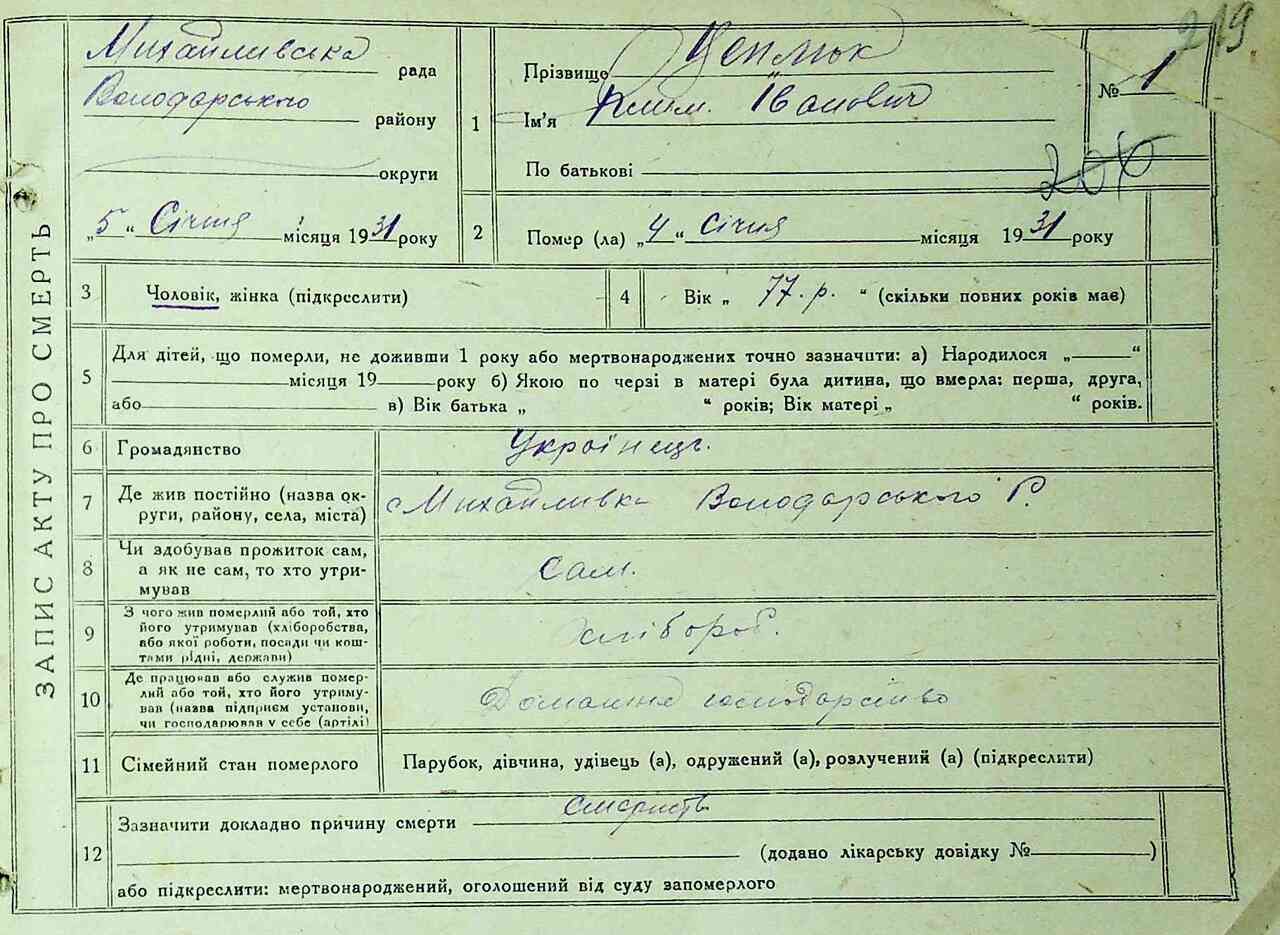 219
ЗАПИС АКТУ ПРО СМЕРТЬ
Михайливська рада
Володарського району
округи
„5“ Січня місяця 1931 року
1 Прізвище
Ім'я Клим. Іванович
По батькові
№ 1
2 Помер (ла) „4“ січня місяця 1931 року
3 Чоловік, жінка (підкреслити)
4 Вік „ 77. р. “ (скільки повних років має)
5 Для дітей, що померли, не доживши 1 року або мертвонароджених точно зазначити: а) Народилося „ “
місяця 19 року б) Якою по черзі в матері була дитина, що вмерла: перша, друга,
або в) Вік батька „ “ років; Вік матері „ “ років.
6 Громадянство Українець.
7 Де жив постійно (назва ок-
руги, району, села, міста) с Михайливка Володарського Р.
8 Чи здобував прожиток сам,
а як не сам, то хто утри-
мував сам.
9 З чого жив померлий або той, хто
його утримував (хліборобства,
або якої роботи, посади чи кош-
тами рідні, держави) хлібороб.
10 Де працював або служив помер-
лий або той, хто його утриму-
вав (назва підприєм установи,
чи господарював у себе (артілі) Домашнє господарство
11 Сімейний стан померлого Парубок, дівчина, удівець (а), одружений (а), розлучений (а) (підкреслити)
12 Зазначити докладно причину смерти
(додано лікарську довідку № )
або підкреслити: мертвонароджений, оголошений від суду запомерлого